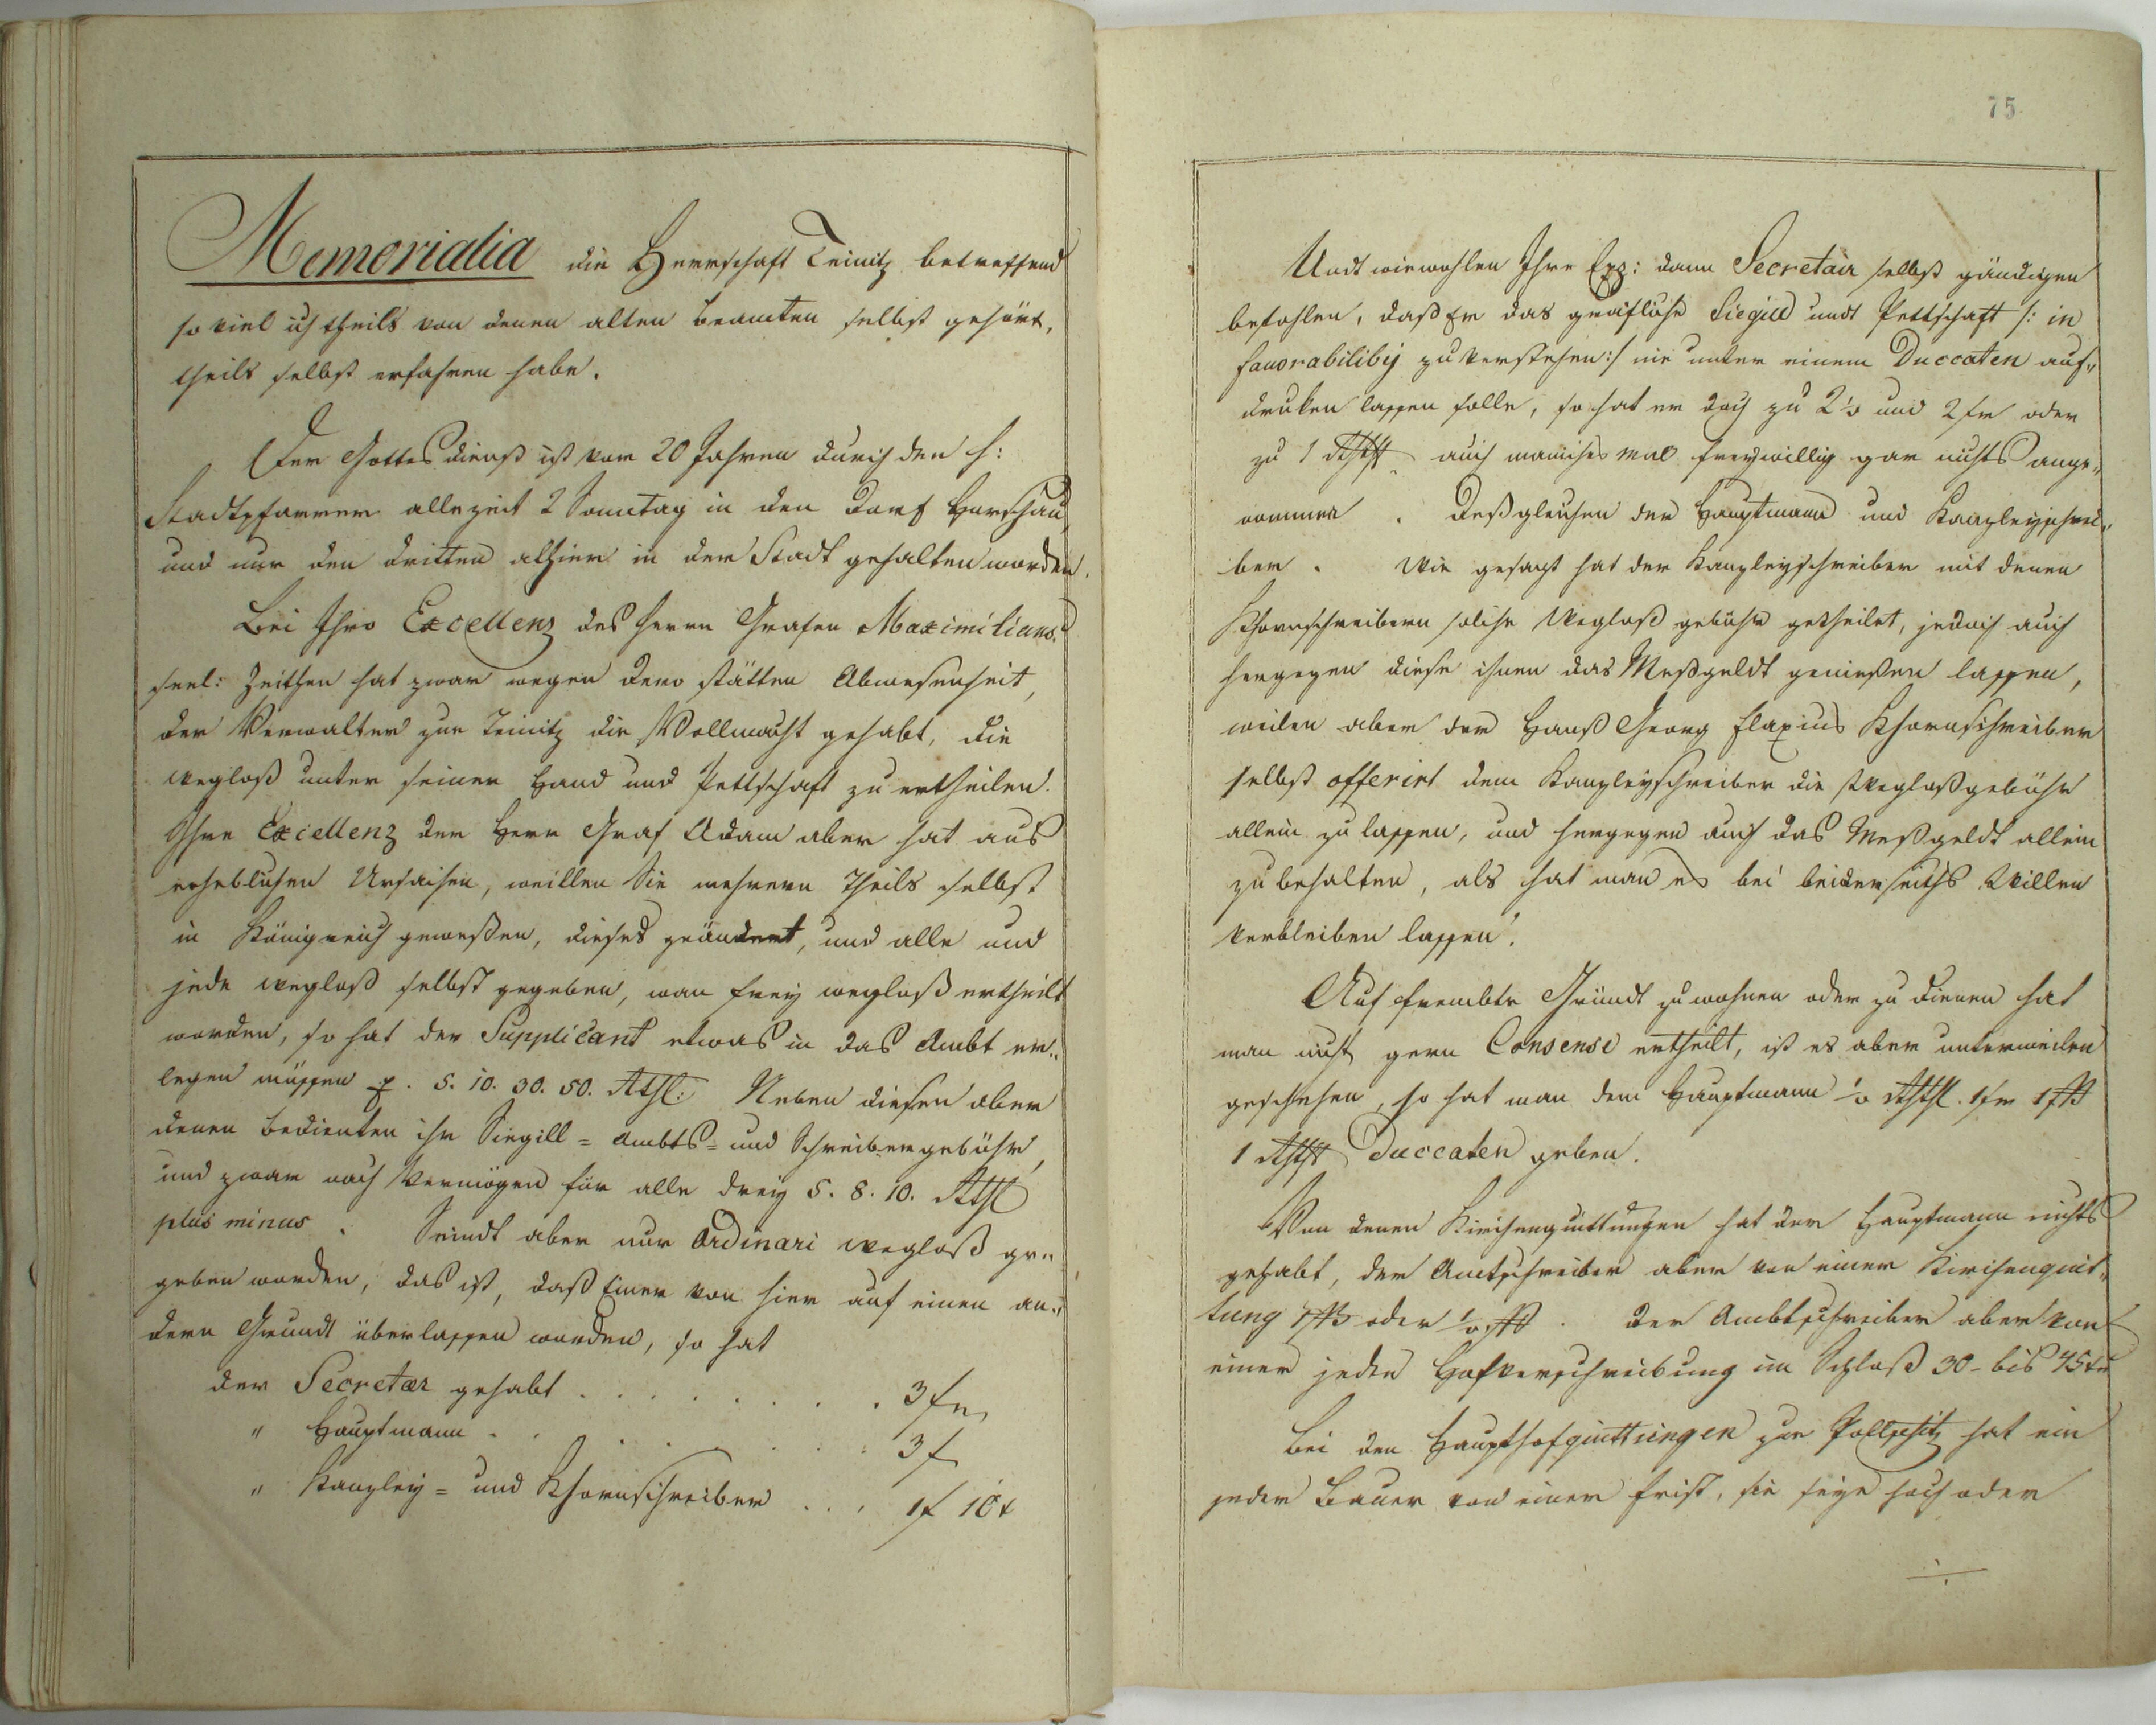 Memorialia die Herrschaft Teinitz betreffend
so viel ich theils von denen alten Beamten selbst gehört,
theils selbst erfahren habe.
Der Gottesdienst ist vor 20 Jahren durch den H:
Stadtpfarrer allezeit 2 Sonntag in den Dorf Horschau
und nur den dritten alhier in der Stadt gehalten worden.
Bei Ihro Excellenz des Herrn Grafen Maximilians
seel: Zeithen hat zwar wegen dero stätten Abwesenheit,
der Verwalter zur Teinitz die Vollmacht gehabt, die
Weglaß unter seiner Hand und Pettschaft zu ertheilen.
Ihre Excellenz der Herr Graf Adam aber hat aus
erheblichen Ursachen, weillen Sie mehrern Theils selbst
in Königreich geweßen, dieses geändert, und alle und
jede Weglaß selbst gegeben, wan frey Weglaß ertheilt
worden, so hat der Supplicant etwas in das Ambt er„
legen müssen p. 5. 10. 30. 50. Rthl: Neben diesen aber
denen Bedienten ihr Siegill= Ambts= und Schreibergebühr,
und zwar nach Vermögen für alle drey 5. 8. 10. Rthl
plus minus. Seindt aber nur Ordinari Weglaß ge„
geben worden, das ist, daß Einer von hier auf einen an„
dern Grundt überlassen worden, so hat
der Secretær gehabt . . . . . . 3 fr
" Hauptmann . . . . . . 3 f
" Kanzley= und Khornschreiber . . . 1 f 10 x
75
Undt wiewohlen Ihre Exz: dann Secretair selbst gändigen
befohlen, daß Er das gräfliche Siegill undt Pettschaft /: in
fauorabilibq zu verstehen :/ nie unter einem Duccaten auf„
druken lassen solle, so hat er doch zu 2½ und 2 fr oder
zu 1 Rthl auch manches mal freywillig gar nichts ange„
nommen. Deßgleichen der Hauptmann und Kanzleyschrei„
ber. Wie gesagt hat der Kanzleyschreiber mit denen
Khornschreibern solche Weglaß gebühr getheilet, jedoch auch
hergegen diese ihnen das Meßgeldt genießen lassen,
weilen aber der Hanß Georg Flaxius Khornschreiber
selbst offerirt dem Kanzleyschreiber die Weglaßgebühr
allein zu lassen, und hergegen auch das Meßgeldt allein
zu behalten, als hat man es bei beiderseiths Willen
verbleiben lassen.
Auf frembte Gründt zu wohnen oder zu dienen hat
man nicht gern Consense ertheilt, ist es aber unterweilen
geschehen, so hat man dem Hauptmann ½ Rthl. 1 fr
1 Rthl Duccaten geben.
Von denen Kirchenquittungen hat der Hauptmann nichts
gehabt, der Amtschreiber aber von einer Kirchenquit„
tung oder ½ . Der Ambtschreiber aber von
einer jeden Hofverschreibung im Schloß 30 - bis 45 xr
Bei den Haupthofquittungen zur hat ein
jeder Bauer von einer Frist, sie seye hoch oder